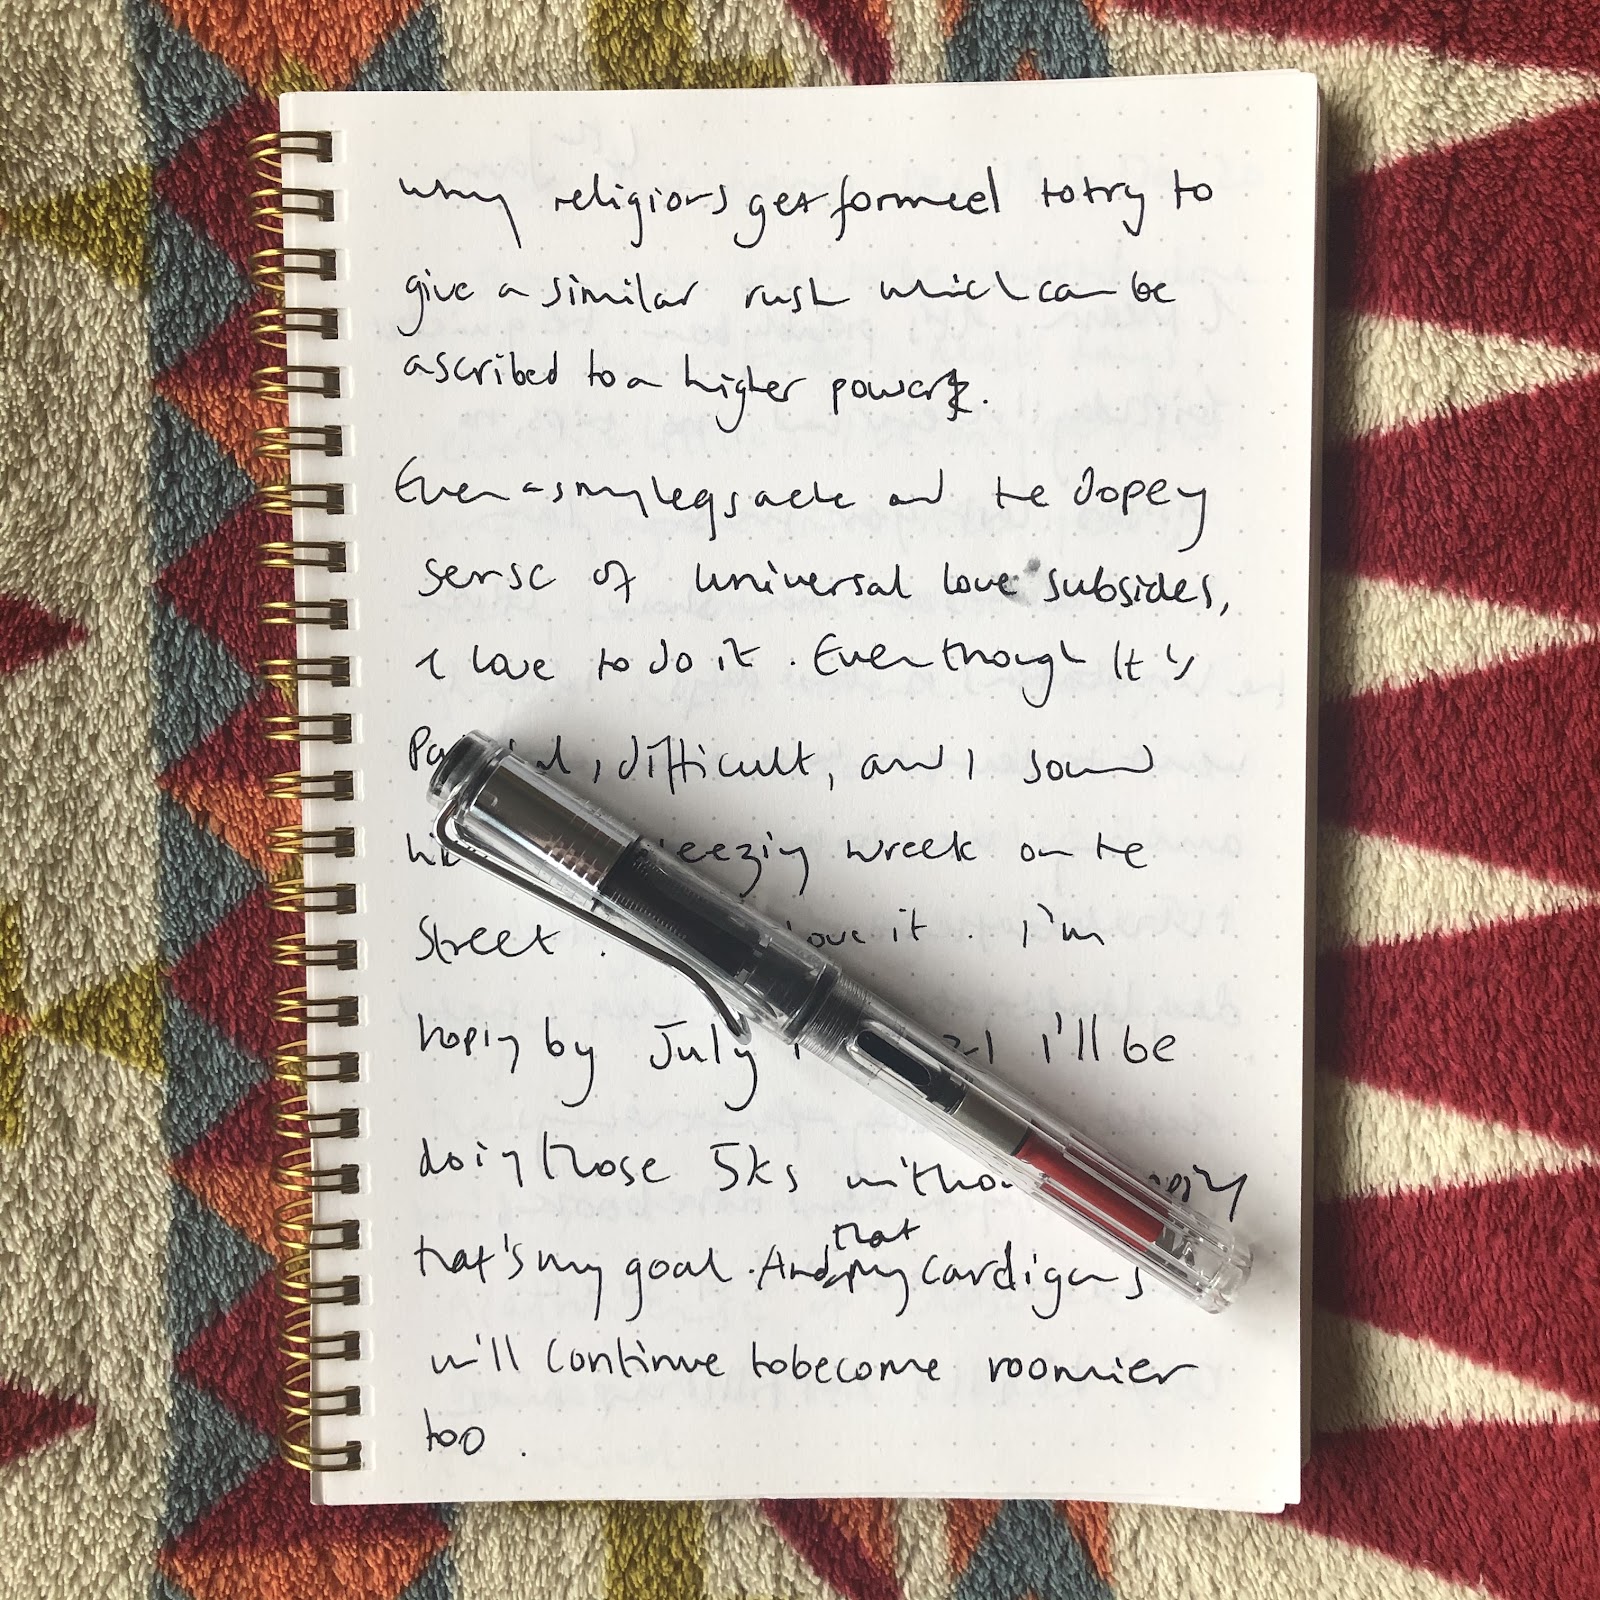 why religions get formed to try to
give a similar rush which can be
ascribed to a higher power.
Even as my legs ache and the dopey
sense of universal love subsides,
I love to do it. Even though it's
difficult, and I sound
wreck on the
street. love it. I'm
hoping by July I'll be
doing those 5ks
that
that's my goal. And my cardigans
will continue to become roomier
too.